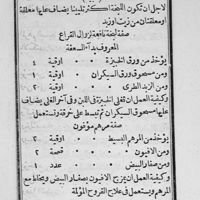 لاجل ان تكون اللبخة اكثر تليينا يضاف عليها معلقة
او معلقتان من زيت او زبد
صفة لبخة نافعة لزوال القراع
المعروف بداء السعفة
يؤخذ من ورق الخبيزة ٠٠ اوقية ٤
ومن مسحوق ورق السيكران ٠٠ اوقية ١
ومن الزبد الطرى ٠٠ اوقية ٢
وكيفية العمل ان تغلى الخبيزة فى اللبن وفى آخر الغلى يضاف
عليها مسحوق السيكران ثم تبسط على خرقة وتستعمل
صفة مرهم مؤفيون
يؤخذ من المرهم البسيط ٠٠ اوقية ٢
ومن الافيون ٠٠ قمحة
ومن صفار البيض ٠٠ عدد ١
وكيفية العمل ان يمزج الافيون بصفار البيض ويخلط مع
المرهم ويستعمل فى علاج القروح المؤلمة